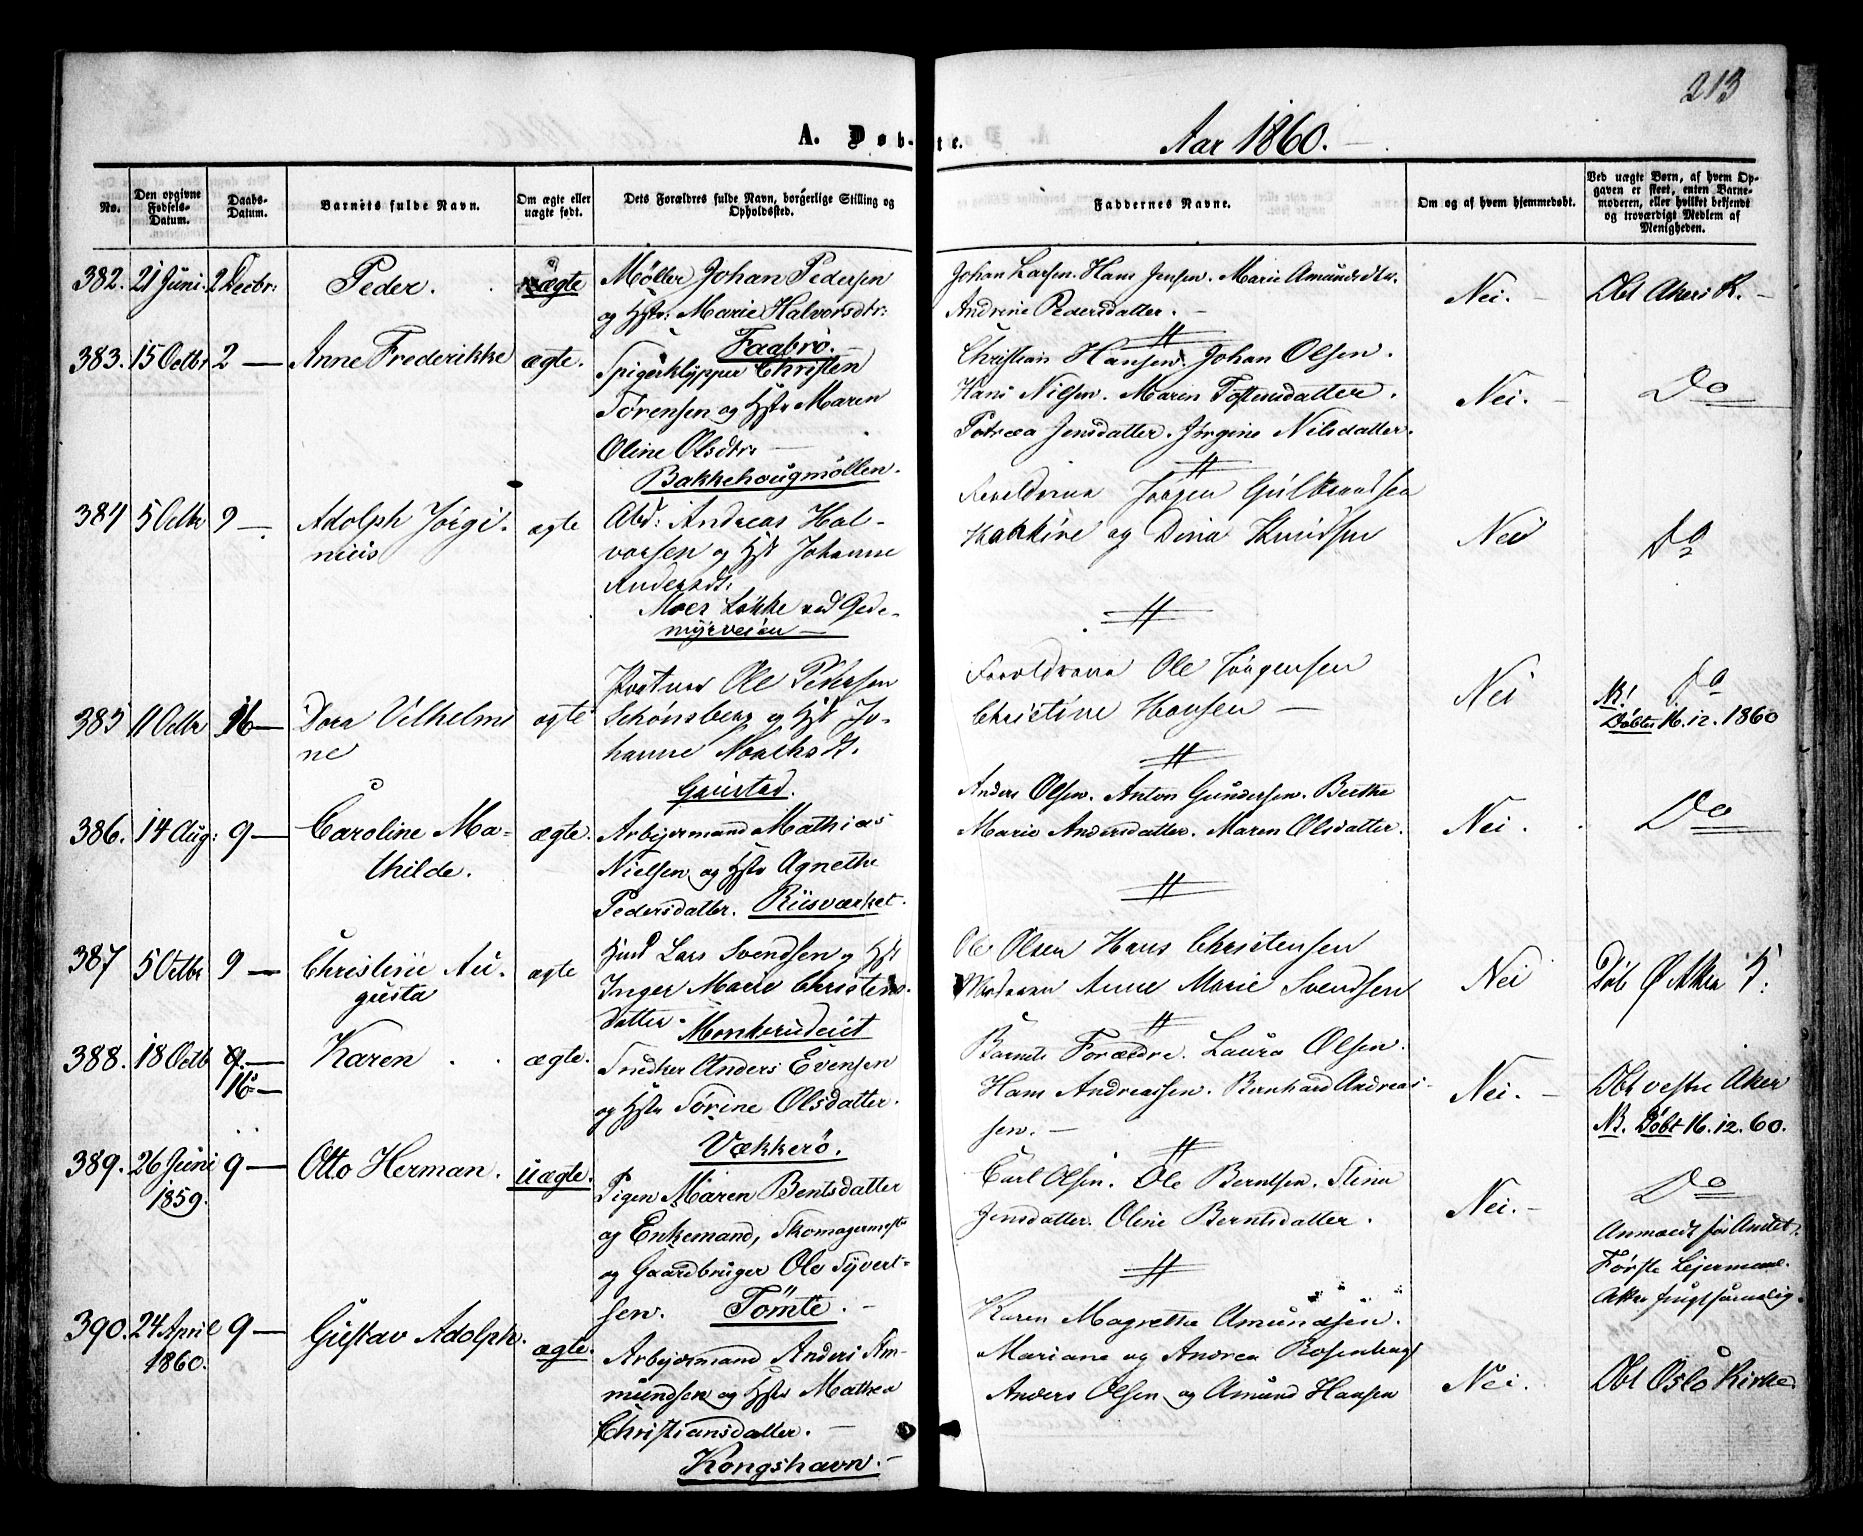 213
A. Døb-te. Aar 1860.
No.
Den opgivne Fødsels-Datum.
Daabs-Datum.
Barnets fulde Navn.
Om ægte eller uægte født.
Dets Forældres fulde Navn, borgerlige Stilling og Opholdssted.
Faddernes Navne.
Om og af hvem hjemmedøbt.
Ved uægte Børn, af hvem Opgaven er skeet, enten Barnemoderen, eller hvilket bekjendt og troværdigt Medlem af Menigheden.
382. 21 Juni. 2 Decbr: Peder. uægte
Møller Johan Pedersen
og Hstr: Marie Halvorsdtr:
Faabrø.
Johan Larsen. Hans Jensen. Marie Amundsdtr.
Andrine Pedersdatter.
Nei. Dbt Akers K.
383. 15 Octbr 2 — Anne Frederikke ægte.
Spigerklypper Christen
Sørensen og Hstr Maren
Oline Olsdtr:
Bakkehougmöllen.
Christian Hansen. Johan Olsen.
Hans Nilsen. Maren Tostensdatter.
Petrea Jensdatter. Jørgine Nilsdatter.
Nei. Do
384 5 Octbr 9 — Adolph Jörgi-
nius
ægte
Abd: Andreas Hal-
vorsen og Hst Johanne
Andersdt:
Moes Løkke ved Gede-
myrveien
Forældrene Jörgen Gulbrandsen
og Dina Knudsen
Nei Do
385 11 Octbr 16 — Dora Vilhelmi
ne
ægte
Ole Petersen
Schönsberg og Hst Jo-
hanne
Gaustad.
Forældrene Ole Jörgensen
Christine Hansen —
Nei Do
NB! Døbt 16.12.1860
386. 14 Aug: 9 — Caroline Ma-
thilde.
ægte.
Arbeidermand Mathias
Nielsen og Hstr Agnethe
Pedersdatter. Riisværket.
Anders Olsen. Anton Gundersen. Berthe
Marie Andersdatter. Maren Olsdatter.
Nei. Do
387 5 Octbr 9 — Christine Au-
gusta
ægte
Hmd Lars Svendsen og Hst
Inger Marie Christens-
datter. Monkerudeiet
Ole Olsen Hans Christensen
Moderen Anne Marie Svendsen
Nei Døb Ø Aker K:
388. 18 Octb 9. —
16 —
Karen ægte.
Snedker Anders Evensen
og Hstr Sørine Olsdatter.
Vækkerö.
Barnets Forældre. Laura Olsen.
Hans Andreassen. Bernhard Andreas-
sen. —
Nei. Dbt vestre Aker
NB. Døbt 16.12.60.
389. 26 Juni 9 —
1859.
Otto Herman. uægte.
Pigen Maren Bentsdatter
og Enkemand, Skomagermestr
og Gaardbruger Ole Syvert-
sen. Tömte.
Carl Olsen. Ole Berntsen. Stina
Jensdatter. Oline Berntsdatter.
Nei. Do
Anmeldt for Andet.
Første Leiermaal.
390. 24 April 9 —
1860.
Gustav Adolph. ægte.
Arbeidermand Anders Am-
mundsen og Hstr Mathea
Christiansdatter.
Kongshavn.
Karen Magrethe Amundsen.
Mariane og Andrea Rosenberg
Anders Olsen og Amund Hansen
Nei. Dbt Oslo Kirke.